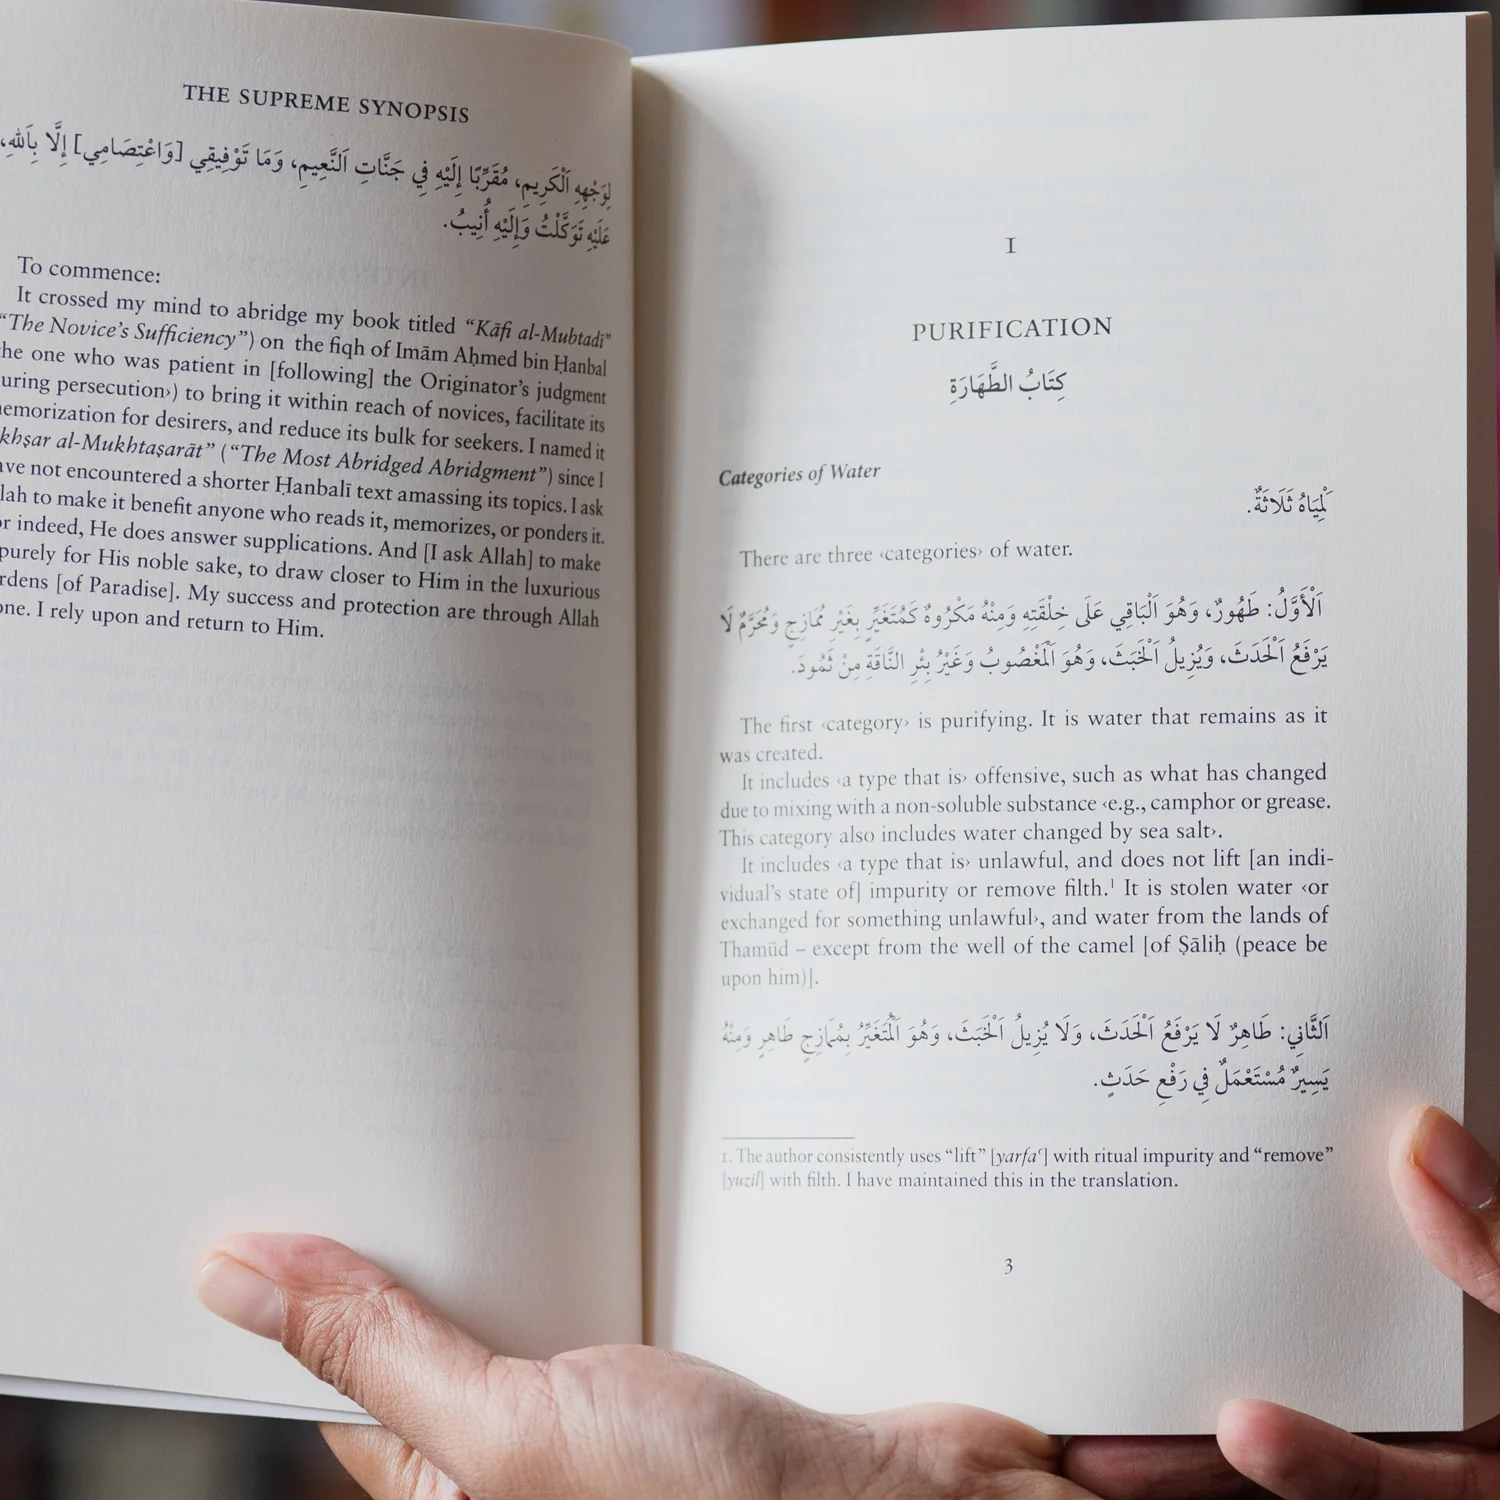 THE SUPREME SYNOPSIS
لِوَجْهِهِ اَلْكَرِيمِ، مُقَرِّبًا إِلَيْهِ فِي جَنَّاتِ اَلنَّعِيمِ، وَمَا تَوْفِيقِي [وَاعْتِصَامِي] إِلَّا بِاَللهِ،
عَلَيْهِ تَوَكَّلْتُ وَإِلَيْهِ أُنِيبُ.
To commence:
It crossed my mind to abridge my book titled “Kāfi al-Mubtadi”
“The Novice’s Sufficiency”) on the fiqh of Imām Aḥmed bin Ḥanbal
the one who was patient in [following] the Originator’s judgment
uring persecution›) to bring it within reach of novices, facilitate its
emorization for desirers, and reduce its bulk for seekers. I named it
khṣar al-Mukhtaṣarāt” (“The Most Abridged Abridgment”) since I
ave not encountered a shorter Ḥanbalī text amassing its topics. I ask
lah to make it benefit anyone who reads it, memorizes, or ponders it.
or indeed, He does answer supplications. And [I ask Allah] to make
purely for His noble sake, to draw closer to Him in the luxurious
rdens [of Paradise]. My success and protection are through Allah
one. I rely upon and return to Him.
I
PURIFICATION
كِتَابُ الطَّهَارَةِ
Categories of Water
لْمِيَاهُ ثَلَاثَةٌ.
There are three ‹categories› of water.
اَلْأَوَّلُ: طَهُورٌ، وَهُوَ اَلْبَاقِي عَلَى خِلْقَتِهِ وَمِنْهُ مَكْرُوهٌ كَمُتَغَيِّرٍ بِغَيْرِ مُمَازِجٍ وَمُحَرَّمٌ لَا
يَرْفَعُ اَلْحَدَثَ، وَيُزِيلُ اَلْخَبَثَ، وَهُوَ اَلْمَغْصُوبُ وَغَيْرُ بِئْرِ النَّاقَةِ مِنْ ثَمُودَ.
The first ‹category› is purifying. It is water that remains as it
was created.
It includes ‹a type that is› offensive, such as what has changed
due to mixing with a non-soluble substance ‹e.g., camphor or grease.
This category also includes water changed by sea salt›.
It includes ‹a type that is› unlawful, and does not lift [an indi-
vidual’s state of] impurity or remove filth.¹ It is stolen water ‹or
exchanged for something unlawful›, and water from the lands of
Thamūd – except from the well of the camel [of Ṣāliḥ (peace be
upon him)].
اَلثَّانِي: طَاهِرٌ لَا يَرْفَعُ اَلْحَدَثَ، وَلَا يُزِيلُ اَلْخَبَثَ، وَهُوَ اَلْمُتَغَيِّرُ بِمُمَازِجٍ طَاهِرٍ وَمِنْهُ
يَسِيرٌ مُسْتَعْمَلٌ فِي رَفْعِ حَدَثٍ.
1. The author consistently uses “lift” [yarfaʿ] with ritual impurity and “remove”
[yuzil] with filth. I have maintained this in the translation.
3